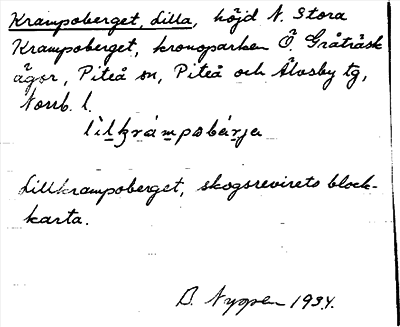 Krampoberget, Lilla, höjd N. Stora
Krampoberget, kronoparken Ö. Gråträsk
ägor, Piteå sn, Piteå och Älvsby tg,
Norrb. l.
lilkrámpobärja
Lillkrampoberget, skogsrevirets block-
karta.
D. Nygren 1934.